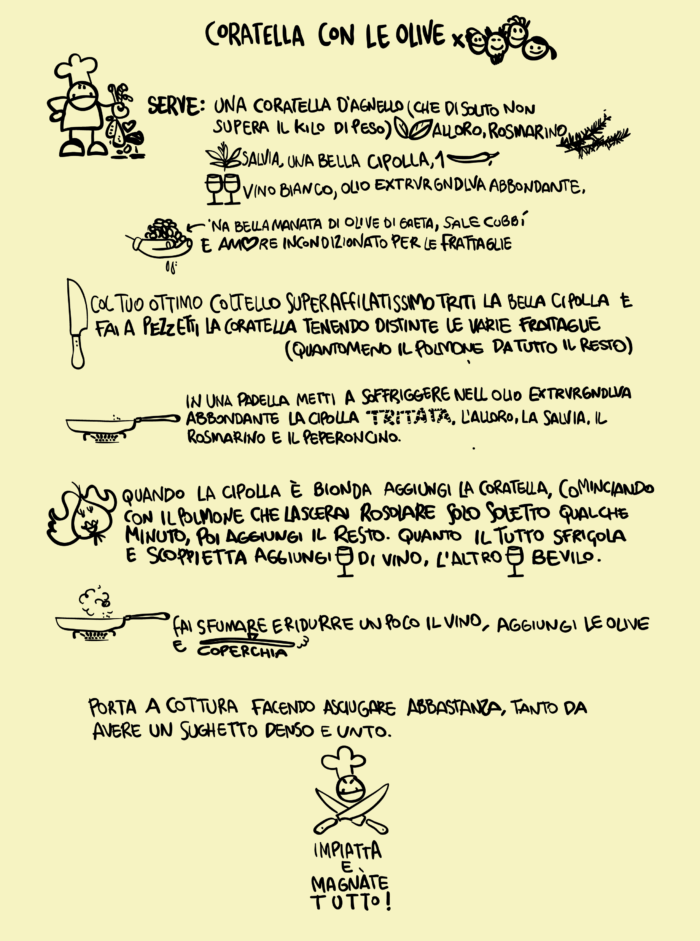 CORATELLA CON LE OLIVE x
SERVE: UNA CORATELLA D'AGNELLO (CHE DI SOLITO NON
SUPERA IL KILO DI PESO) ALLORO, ROSMARINO
SALVIA, UNA BELLA CIPOLLA, 1
VINO BIANCO, OLIO EXTRVRGNDLVA ABBONDANTE,
'NA BELLA MANATA DI OLIVE DI GAETA, SALE CUBBÍ
E AMORE INCONDIZIONATO PER LE FRATTAGLIE
COL TUO OTTIMO COLTELLO SUPERAFFILATISSIMO TRITI LA BELLA CIPOLLA E
FAI A PEZZETTI LA CORATELLA TENENDO DISTINTE LE VARIE FRATTAGLIE
(QUANTOMENO IL POLMONE DA TUTTO IL RESTO)
IN UNA PADELLA METTI A SOFFRIGGERE NELL OLIO EXTRVRGNDLVA
ABBONDANTE LA CIPOLLA TRITATA, L'ALLORO, LA SALVIA, IL
ROSMARINO E IL PEPERONCINO.
QUANDO LA CIPOLLA È BIONDA AGGIUNGI LA CORATELLA, COMINCIANDO
CON IL POLMONE CHE LASCERAI ROSOLARE SOLO SOLETTO QUALCHE
MINUTO, POI AGGIUNGI IL RESTO. QUANTO IL TUTTO SFRIGOLA
E SCOPPIETTA AGGIUNGI DI VINO, L'ALTRO BEVILO.
FAI SFUMARE E RIDURRE UN POCO IL VINO, AGGIUNGI LE OLIVE
E COPERCHIA
PORTA A COTTURA FACENDO ASCIUGARE ABBASTANZA, TANTO DA
AVERE UN SUGHETTO DENSO E UNTO.
IMPIATTA
E
MAGNÀTE
TUTTO!